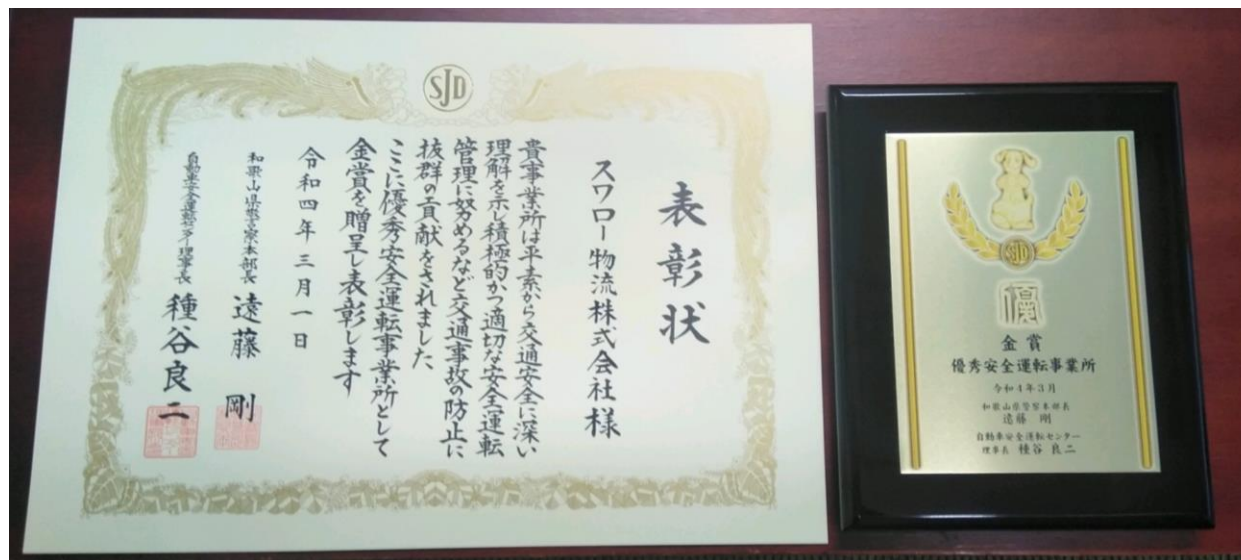 SJD
表彰状
スワロー物流株式会社様
貴事業所は平素から交通安全に深い
理解を示し積極的かつ適切な安全運転
管理に努めるなど交通事故の防止に
抜群の貢献をされました
ここに優秀安全運転事業所として
金賞を贈呈し表彰します
令和四年三月一日
和歌山県警察本部長 遠藤 剛
自動車安全運転センター理事長 種谷良二
SJD
優
金賞
優秀安全運転事業所
令和4年3月
和歌山県警察本部長
遠藤 剛
自動車安全運転センター
理事長 種谷良二